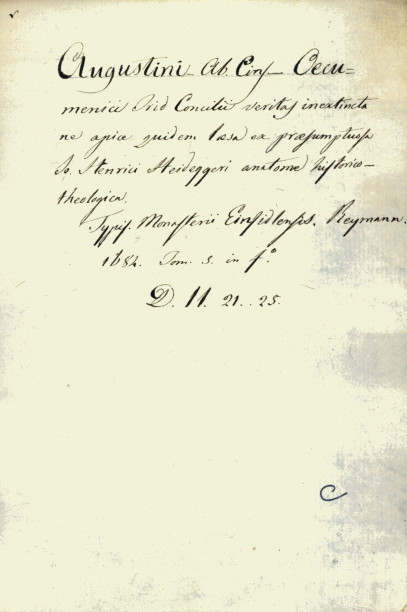 Augustini Ab. Eins. Oecu-
menici Trid Concilii veritas inextincta
ne apice quidem læsa ex præsumptuosa
Jo. Henrici Heideggeri anatome historico-
theologica.
Typis. Monasterii Einsidlensis. Reymann.
1684. Tom. 5. in f.º
D. 11. 21. 25.
C